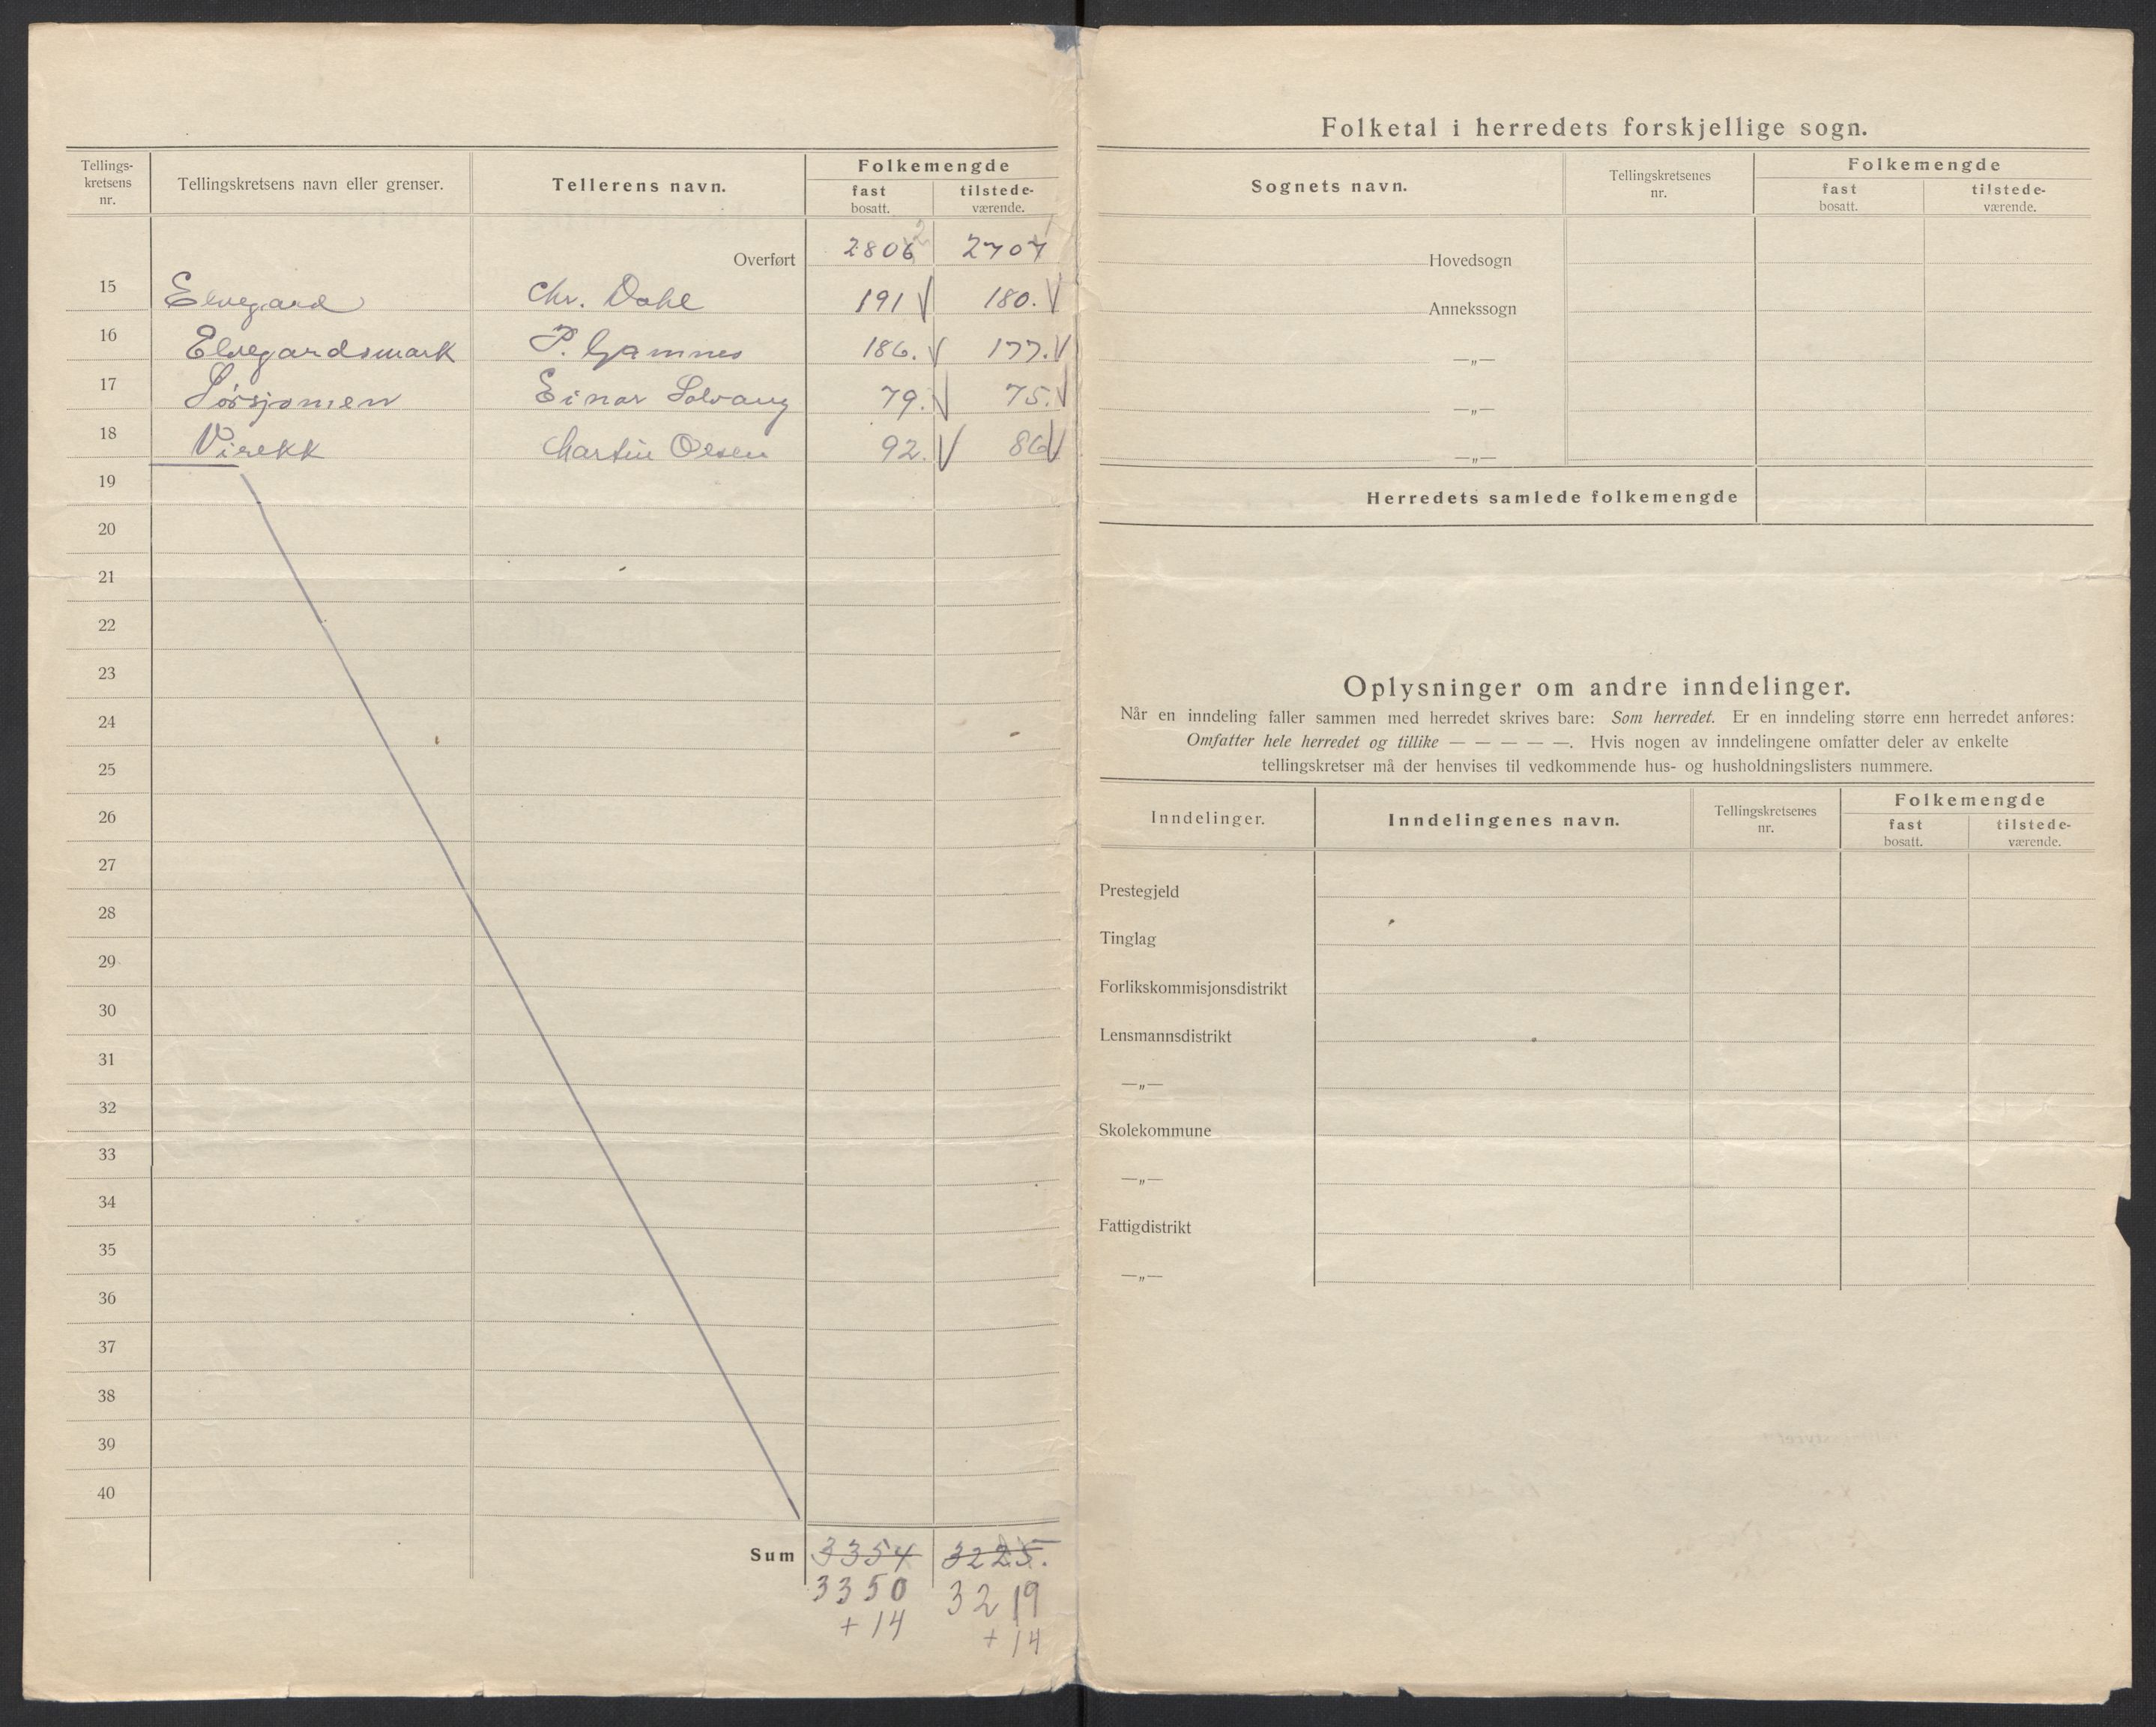 Tellings-
kretsens
nr.
Tellingskretsens navn eller grenser.
Tellerens navn.
Folkemengde
fast
bosatt.
tilstede-
værende.
Overført 2806 2 2707 1
15 Elvegard Chr. Dahl 191 V 180. V
16 Elvegardsmark P. Gamnes 186. V 177. V
17 Sørsjomen Einar Solvang 79. V 75. V
18 Virekk Martin Olsen 92. V 86 V
19
20
21
22
23
24
25
26
27
28
29
30
31
32
33
34
35
36
37
38
39
40
Sum 3354 3225.
3350 3219
+ 14 + 14
Folketal i herredets forskjellige sogn.
Sognets navn.
Tellingskretsenes
nr.
Folkemengde
fast
bosatt.
tilstede-
værende.
Hovedsogn
Annekssogn
—„—
—„—
—„—
Herredets samlede folkemengde
Oplysninger om andre inndelinger.
Når en inndeling faller sammen med herredet skrives bare: Som herredet. Er en inndeling større enn herredet anføres:
Omfatter hele herredet og tillike — — — — —. Hvis nogen av inndelingene omfatter deler av enkelte
tellingskretser må der henvises til vedkommende hus- og husholdningslisters nummere.
Inndelinger.
Inndelingenes navn.
Tellingskretsenes
nr.
Folkemengde
fast
bosatt.
tilstede-
værende.
Prestegjeld
Tinglag
Forlikskommisjonsdistrikt
Lensmannsdistrikt
—„—
Skolekommune
—„—
Fattigdistrikt
—„—